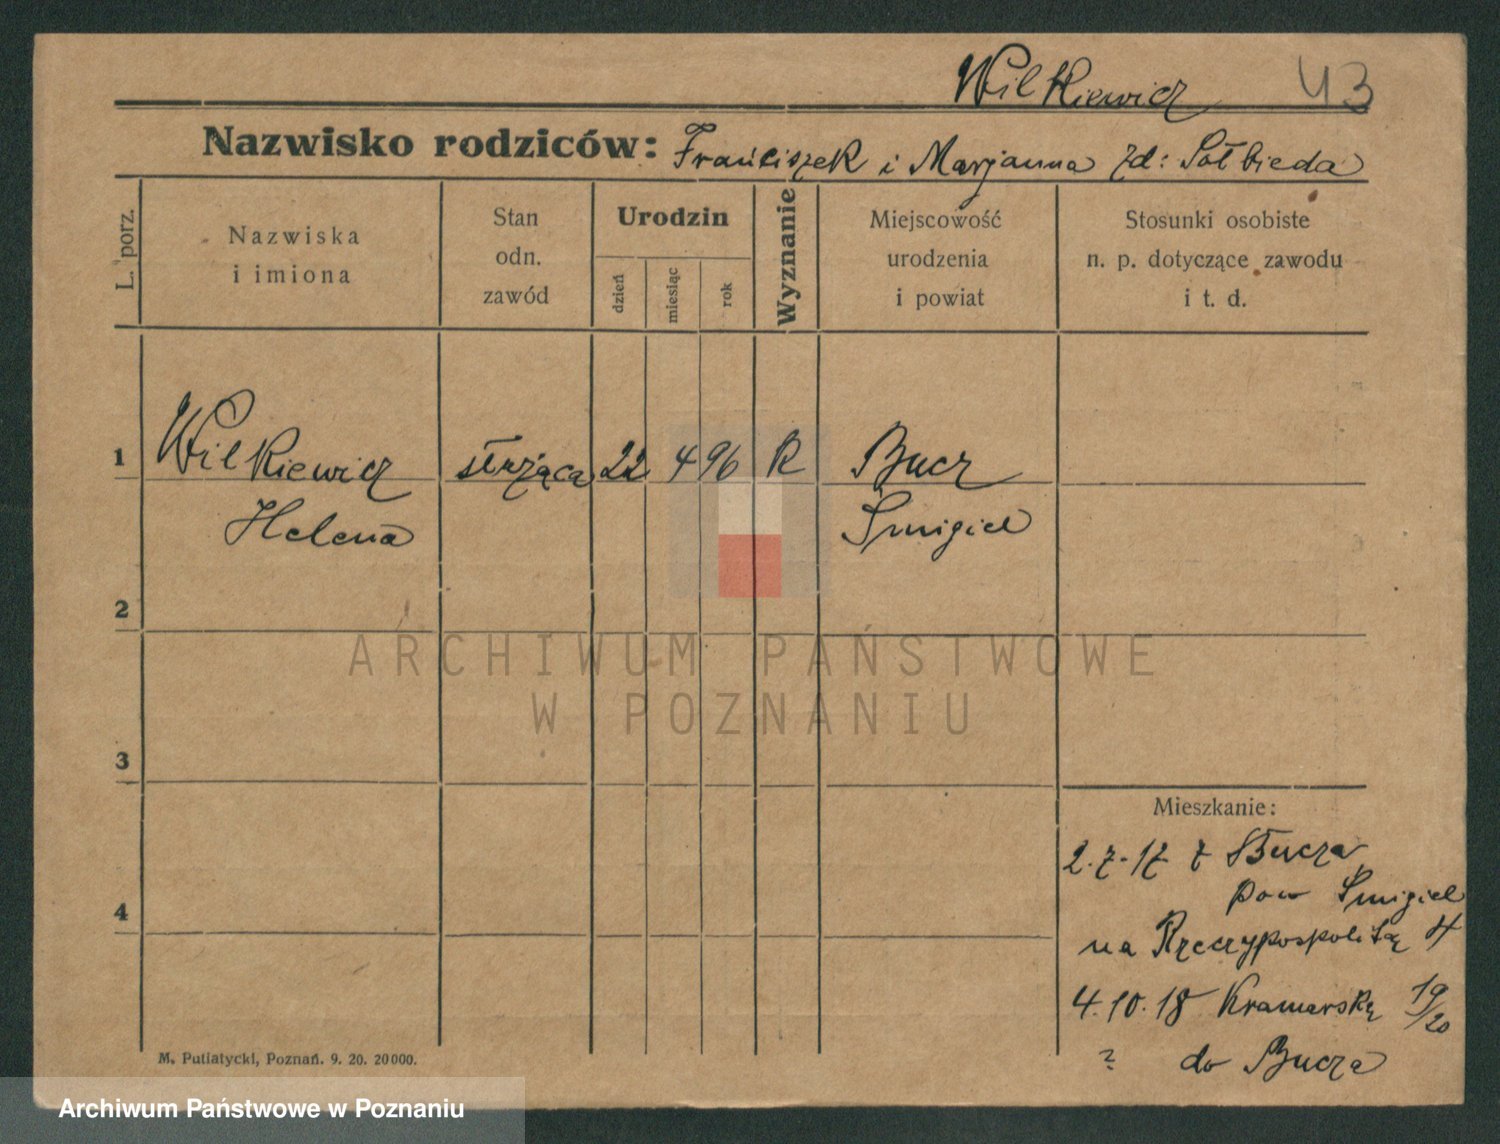 Wilkiewicz 43
Nazwisko rodziców: Franciszek i Marjanna zd: Sołbieda
L. porz.
Nazwiska
i imiona
Stan
odn.
zawód
Urodzin
dzień
miesiąc
rok
Wyznanie
Miejscowość
urodzenia
i powiat
Stosunki osobiste
n. p. dotyczące zawodu
i t. d.
1 Wilkiewicz służąca 22 4 96 R Bucz
Helena Śmigiel
2
ARCHIWUM PAŃSTWOWE
W POZNANIU
3
Mieszkanie:
2.7.17 z Bucza
pow Śmigiel
4
na Rzeczypospolitą 4
4.10.18 Kramarską 19/20
? do Bucza
M. Putiatycki, Poznań. 9. 20. 20000.
Archiwum Państwowe w Poznaniu